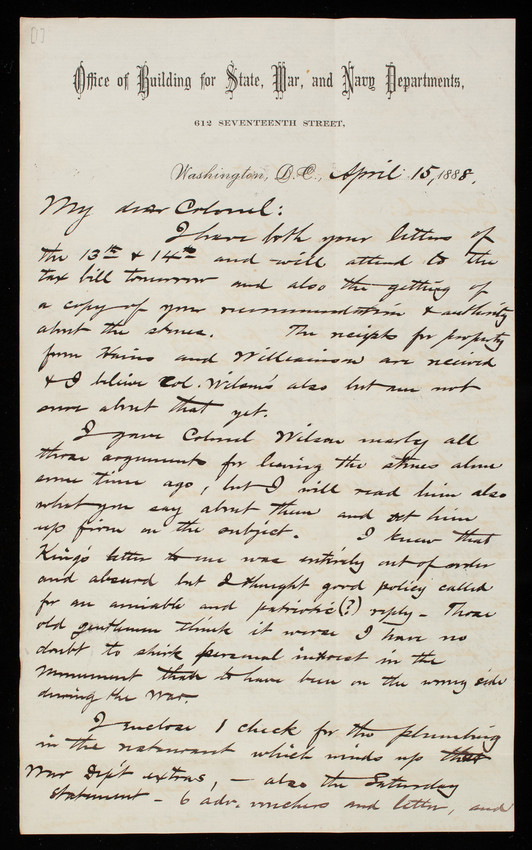 [1]
Office of Building for State, War, and Navy Departments,
612 SEVENTEENTH STREET,
Washington, D.C., April 15, 1888.
My dear Colonel:
I have both your letters of
the 13th & 14th and will attend to the
tax bill tomorrow and also the getting of
a copy of your recommendation & authority
about the stones. The receipts for property
from Hains and Williamson are received
& I believe Col. Wilson's also but am not
sure about that yet.
I gave Colonel Wilson nearly all
those arguments for leaving the stones alone
some time ago, but I will read him also
what you say about them and set him
up firm on the subject. I knew that
King's letter to me was entirely out of order
and absurd but I thought good policy called
for an amiable and patriotic (?) reply - Those
old gentlemen think it worse I have no
doubt to shirk personal interest in the
Monument than to have been on the wrong side
during the War.
I enclose 1 check for the plumbing
in the restaurant which winds up that
War Dep't extras, - also the Saturday
statement - 6 adv. vouchers and letter, and